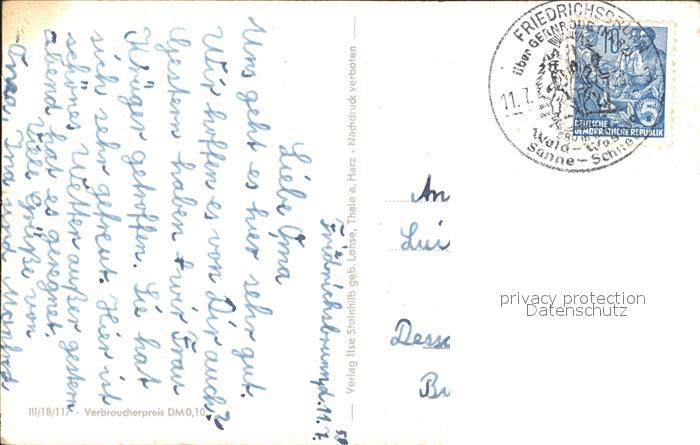 Friedrichsbrunn, d. 11. 7. 58
Liebe Oma
Uns geht es hier sehr gut.
Wir hoffen es von Dir auch?
Gestern haben wir Frau
Krüger getroffen. Sie hat
sich sehr gefreut. Hier ist
schönes Wetter außer gestern
abend hat es geregnet.
Viele Grüße von
Ina und Manfred
III/18/117 · Verbraucherpreis DM 0,10
Verlag Ilse Steinhilb geb. Lohse, Thale a. Harz · Nachdruck verboten
FRIEDRICHSBRUNN
über GERNRODE
11.7.
Wald -
Sonne - Schnee
10
5
DEUTSCHE
DEMOKRATISCHE REPUBLIK
An
Lui
Dess
privacy protection
Datenschutz